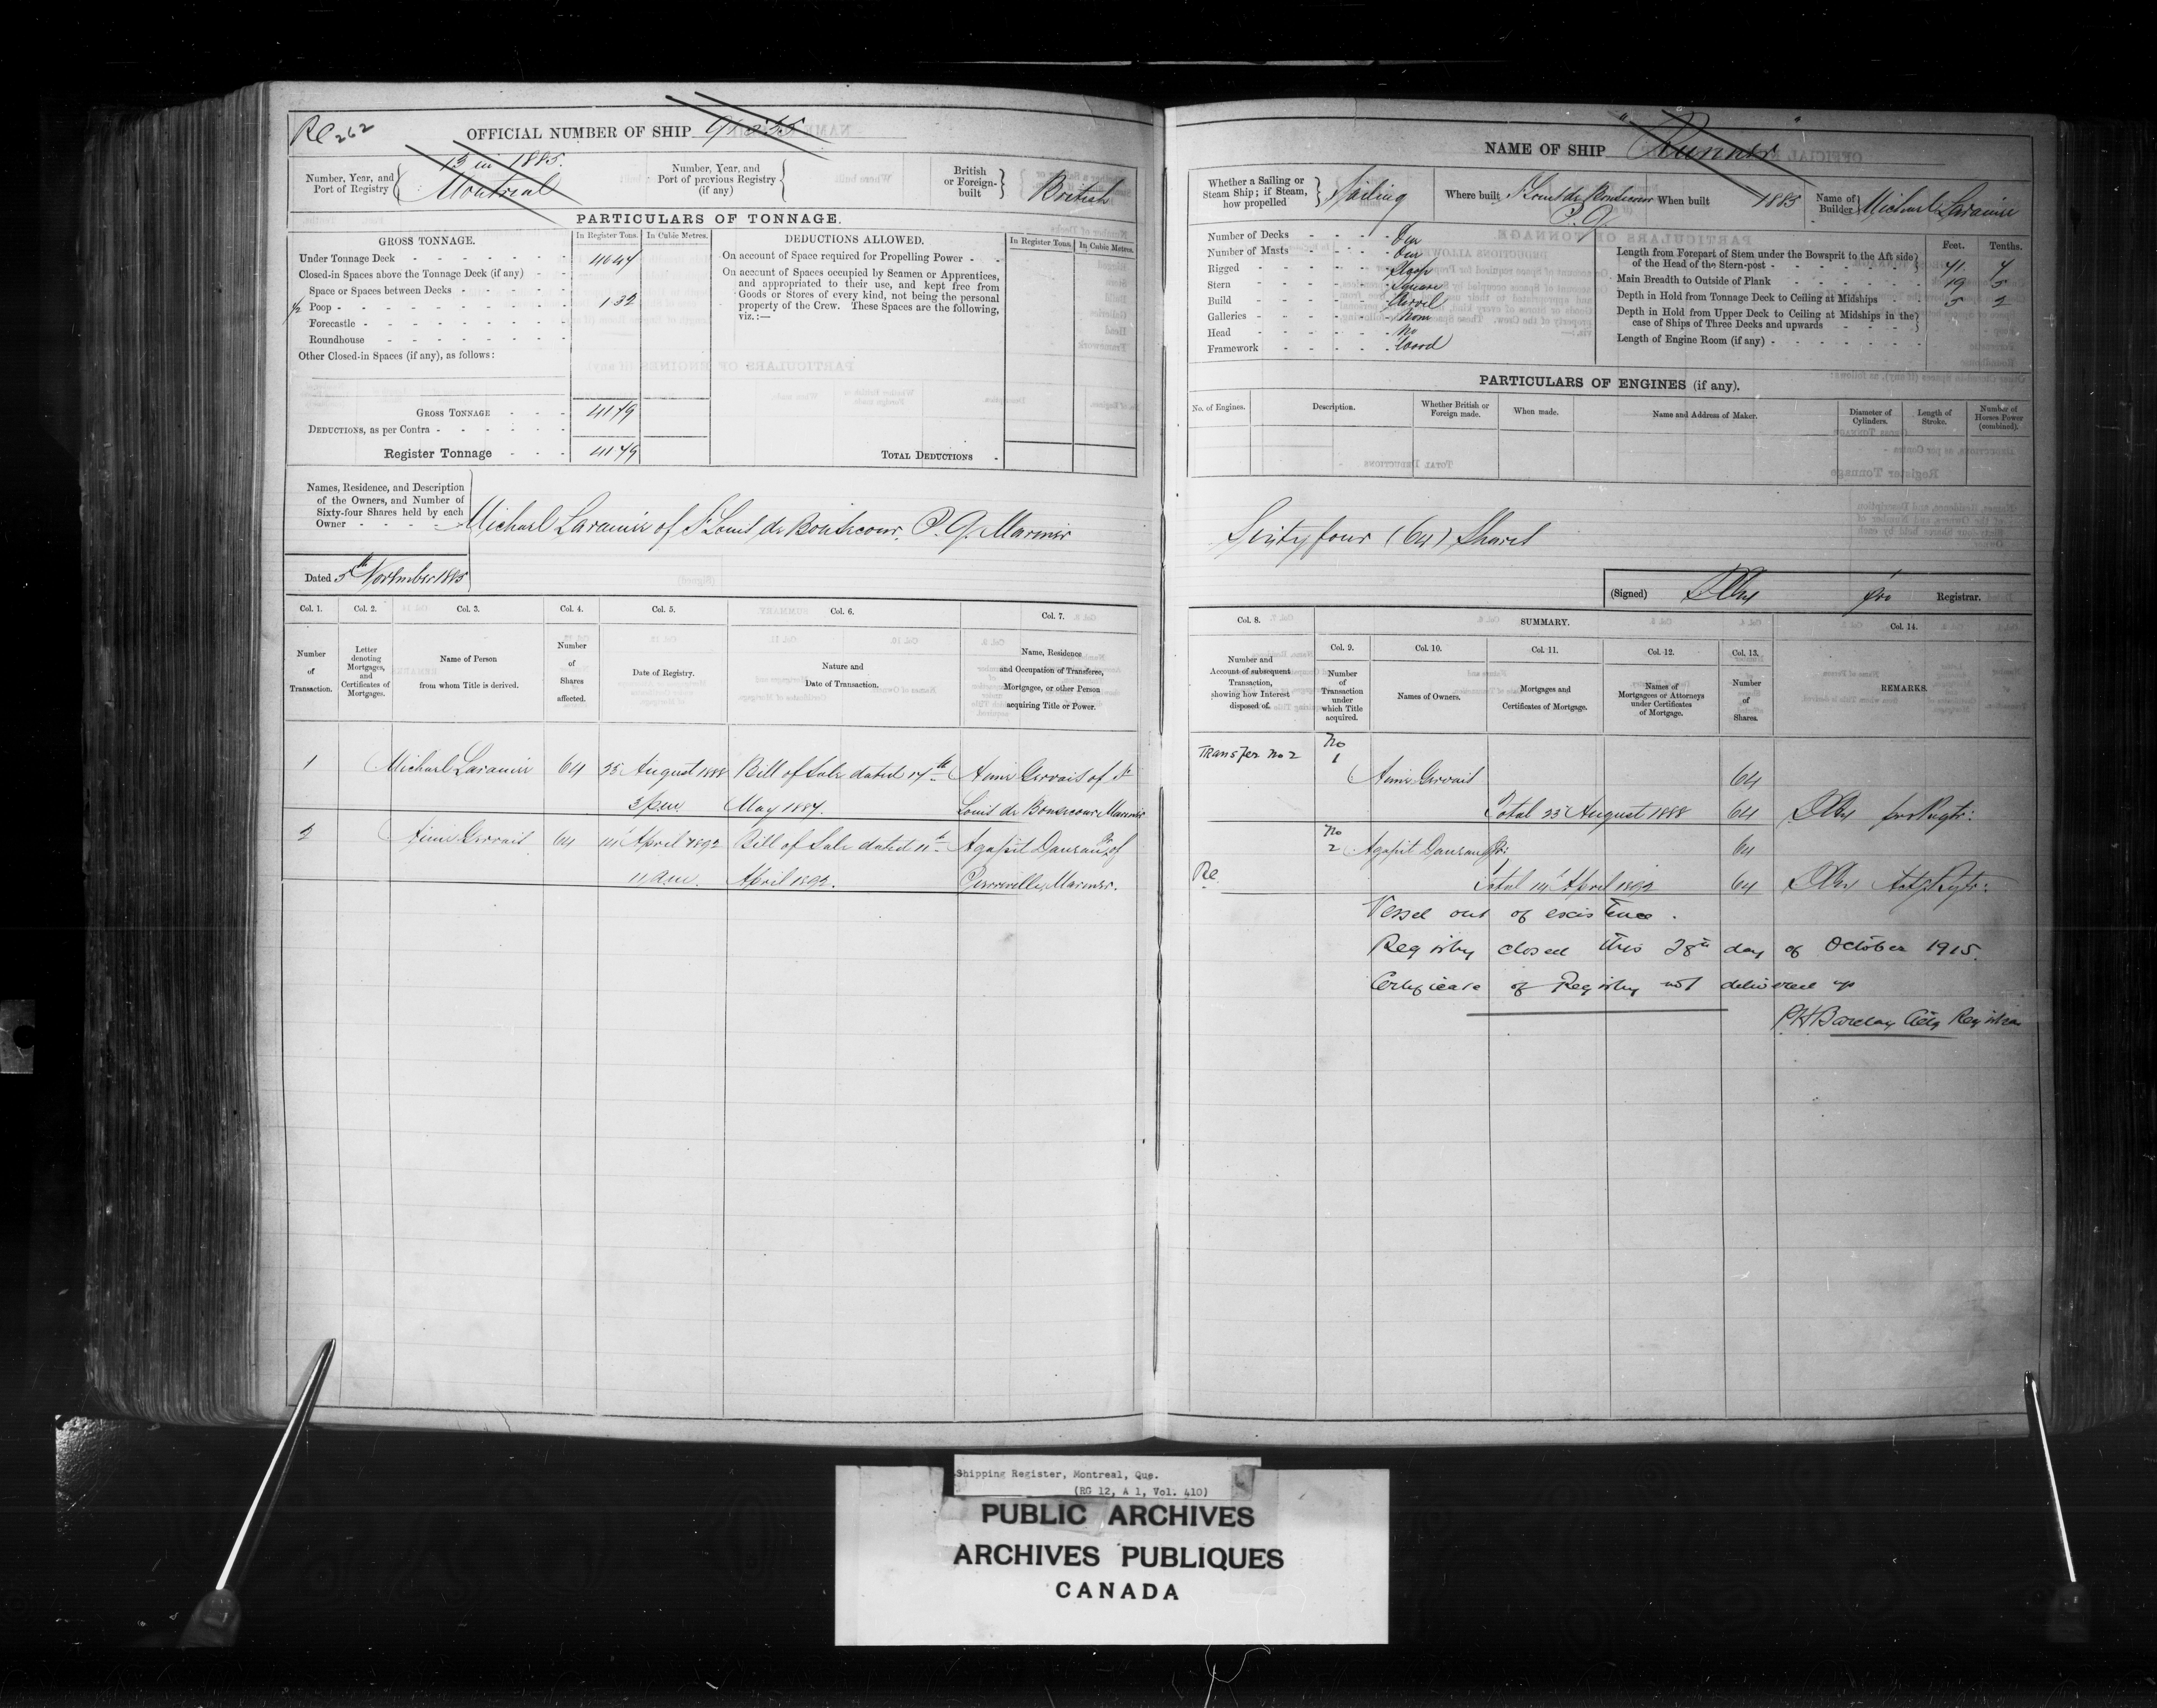 Re 262
OFFICIAL NUMBER OF SHIP
Number, Year, and Port of Registry
13 in 1885.
Montreal
Number, Year, and Port of previous Registry (if any)
British or Foreign-built
British
PARTICULARS OF TONNAGE.
GROSS TONNAGE. In Register Tons. In Cubic Metres.
Under Tonnage Deck
Closed-in Spaces above the Tonnage Deck (if any)
Space or Spaces between Decks
Poop 1.32
Forecastle
Roundhouse
Other Closed-in Spaces (if any), as follows:
GROSS TONNAGE
DEDUCTIONS, as per Contra
Register Tonnage
DEDUCTIONS ALLOWED. In Register Tons. In Cubic Metres.
On account of Space required for Propelling Power
On account of Spaces occupied by Seamen or Apprentices,
and appropriated to their use, and kept free from
Goods or Stores of every kind, not being the personal
property of the Crew. These Spaces are the following,
viz.:—
TOTAL DEDUCTIONS
Names, Residence, and Description
of the Owners, and Number of
Sixty-four Shares held by each
Owner
Michael Laramée of St Louis de Bonsecour, P.Q. Mariner
Dated 5th November 1885
Col. 1. Col. 2. Col. 3. Col. 4. Col. 5. Col. 6. Col. 7.
Number of Transaction.
Letter denoting Mortgages, and Certificates of Mortgages.
Name of Person from whom Title is derived.
Number of Shares affected.
Date of Registry.
Nature and Date of Transaction.
Name, Residence and Occupation of Transferee, Mortgagee, or other Person acquiring Title or Power.
1 Michael Laramée 64 23 August 1888 Bill of Sale dated 17th Aimé Gervais of St
3 p.m. May 1887. Louis de Bonsecour Mariner
2 Aimé Gervais 64 14 April 1892 Bill of Sale dated 11th Agapit Dausau Jr. of
11 a.m. April 1892. Pierreville, Mariner.
NAME OF SHIP "Runner"
Whether a Sailing or Steam Ship; if Steam, how propelled
Sailing
Where built St Louis de Bonsecour P.Q.
When built 1885
Name of Builder Michael Laramée
Number of Decks One
Number of Masts One
Rigged Sloop
Stern Square
Build Carvel
Galleries None
Head No
Framework Wood
Feet. Tenths.
Length from Forepart of Stem under the Bowsprit to the Aft side of the Head of the Stern-post 71. 7
Main Breadth to Outside of Plank 19 5
Depth in Hold from Tonnage Deck to Ceiling at Midships 5 2
Depth in Hold from Upper Deck to Ceiling at Midships in the case of Ships of Three Decks and upwards
Length of Engine Room (if any)
PARTICULARS OF ENGINES (if any).
No. of Engines. Description. Whether British or Foreign made. When made. Name and Address of Maker. Diameter of Cylinders. Length of Stroke. Number of Horses Power (combined).
Sixty four (64) Shares
(Signed) pro Registrar.
Col. 8. SUMMARY. Col. 14.
Col. 9. Col. 10. Col. 11. Col. 12. Col. 13.
Number and Account of subsequent Transaction, showing how Interest disposed of.
Number of Transaction under which Title acquired.
Names of Owners.
Mortgages and Certificates of Mortgage.
Names of Mortgagees or Attorneys under Certificates of Mortgage.
Number of Shares.
REMARKS.
Transfer No 2 No 1 Aimé Gervais 64
Total 23 August 1888 64 pro Regtr:
No 2 Agapit Dausau Jr: 64
Re Total 14 April 1892 64 Actg Regtr:
Vessel out of existence.
Registry closed this 28th day of October 1915.
Certificate of Registry not delivered up
P.H. Barclay Actg Registrar
Shipping Register, Montreal, Que.
(RG 12, A 1, Vol. 410)
PUBLIC ARCHIVES
ARCHIVES PUBLIQUES
CANADA